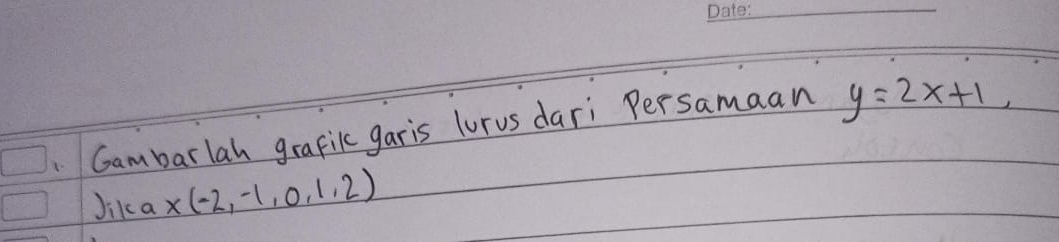 Date:
1. Gambarlah grafik garis lurus dari Persamaan y=2x+1,
Jika x (-2,-1,0,1,2)